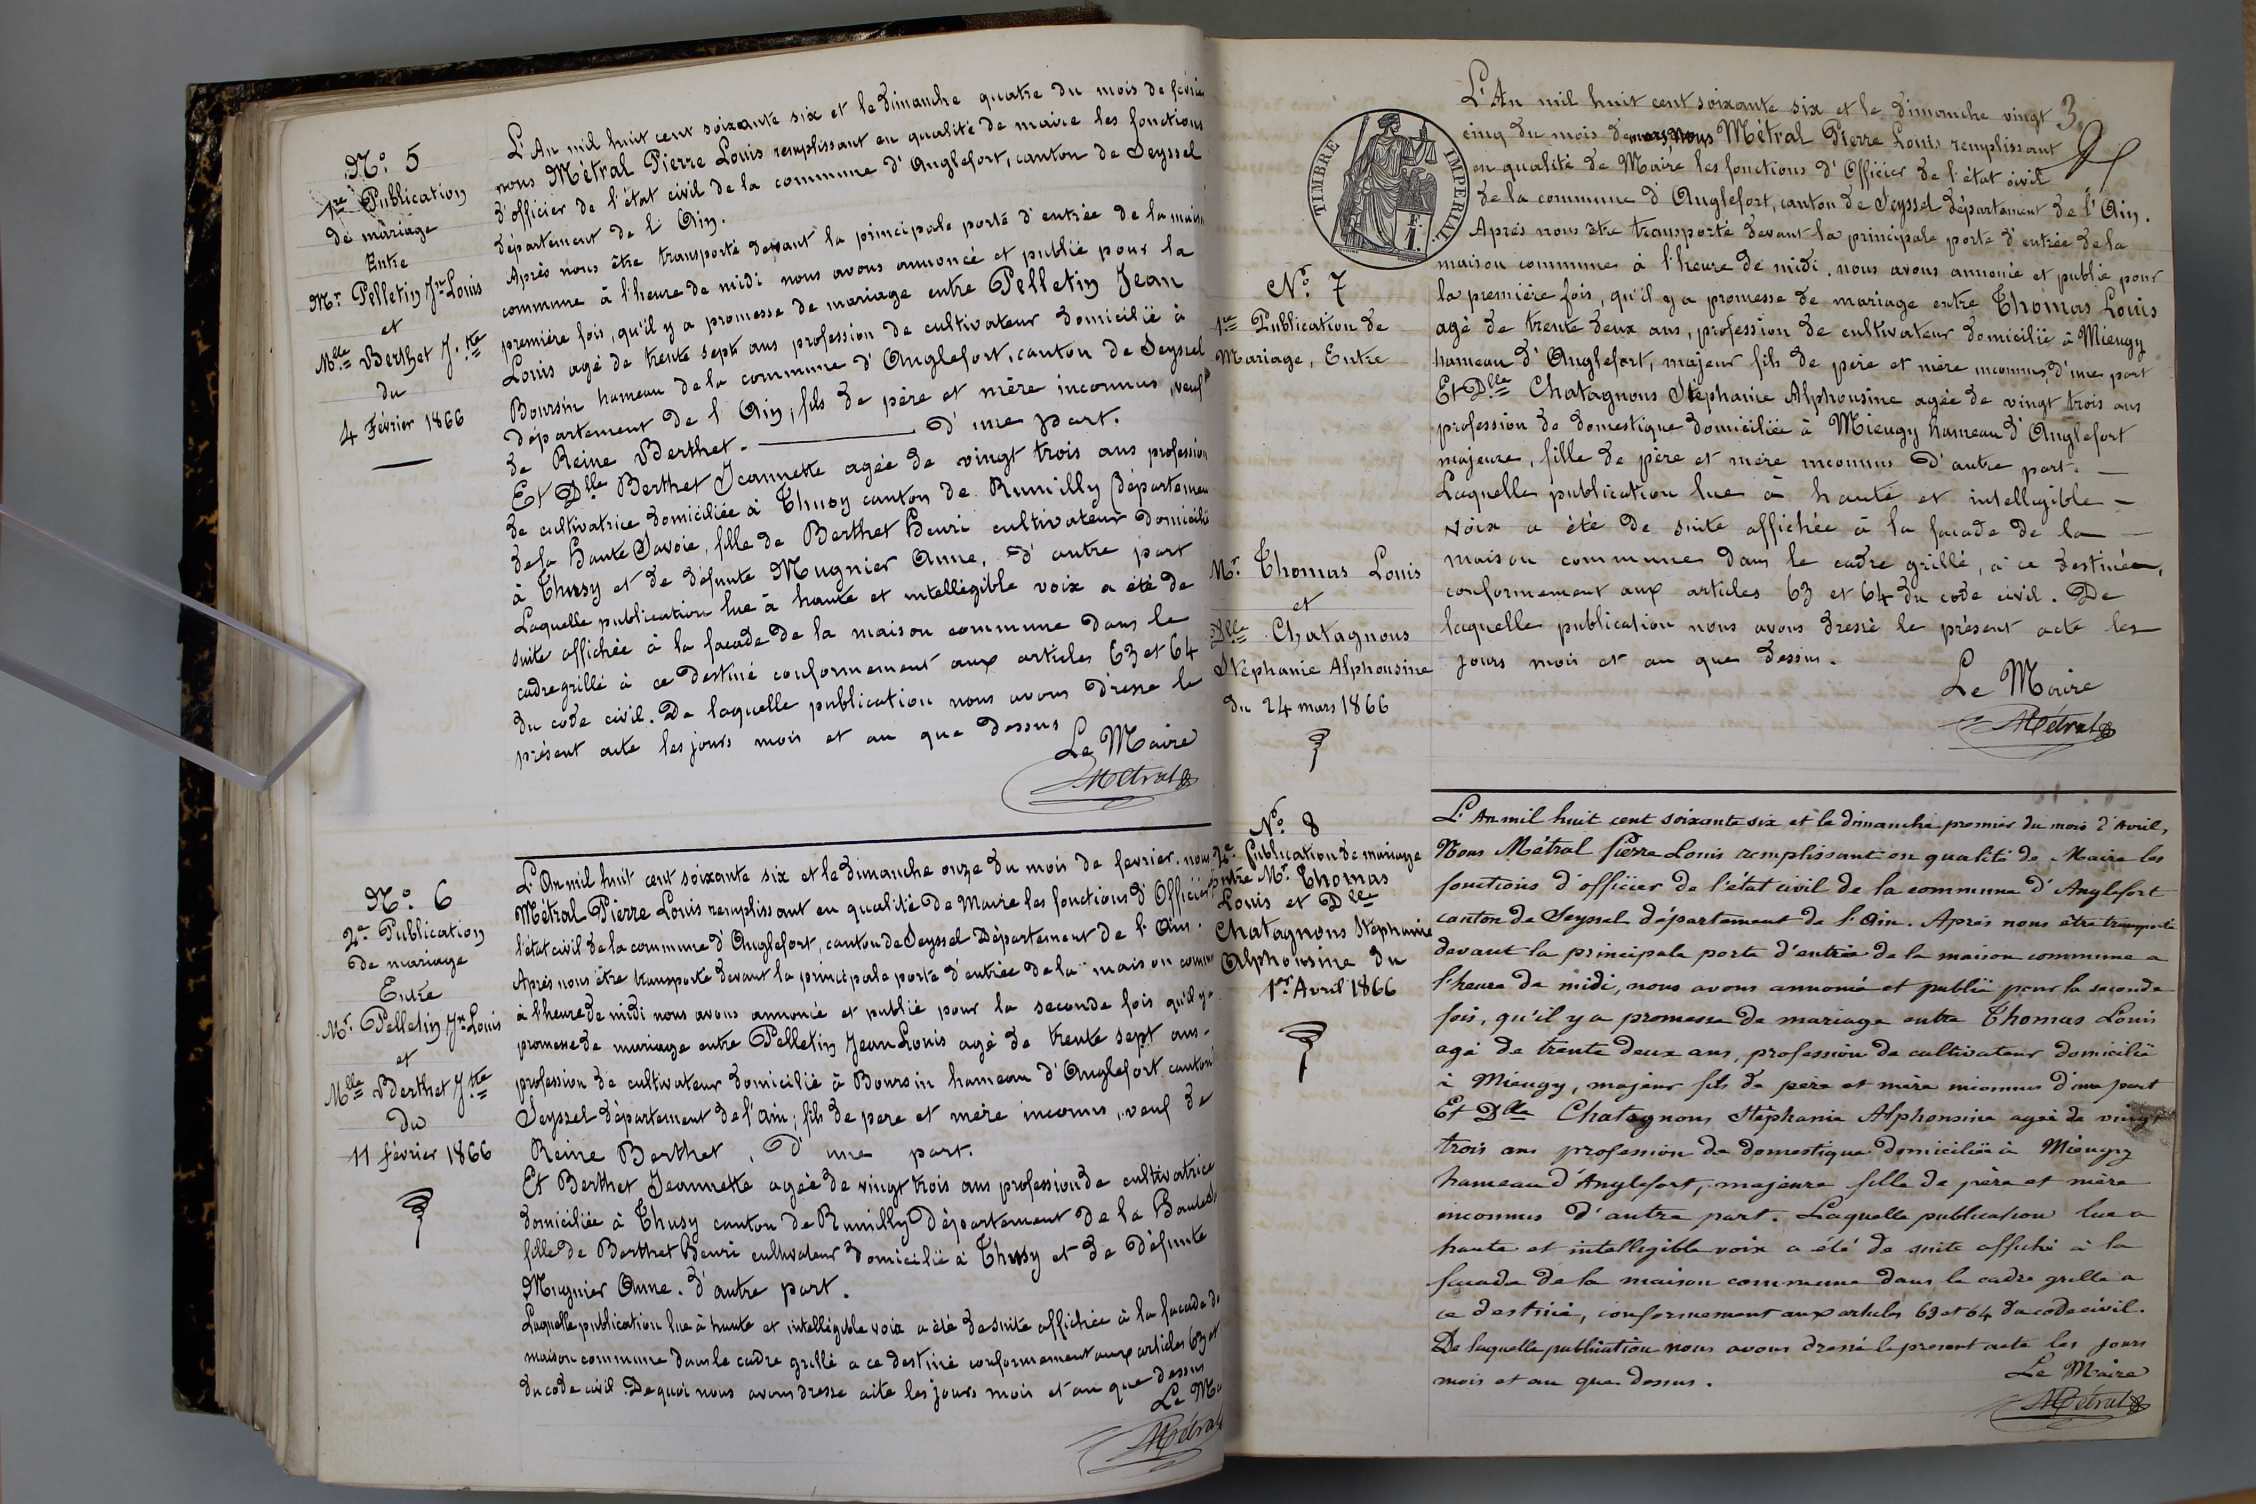 N° 5
1re Publication
de mariage
Entre
Mr Pelletin Jn Louis
et
Mlle Berthet J.tte
du
4 Février 1866
L'An mil huit cent soixante six et le dimanche quatre du mois de févrie
nous Métral Pierre Louis remplissant en qualité de maire les fonctions
d'officier de l'état civil de la commune d'Anglefort, canton de Seyssel
département de l'Ain.
Après nous être transporté devant la principale porte d'entrée de la maiso
commune à l'heure de midi nous avons annoncé et publié pour la
première fois, qu'il y a promesse de mariage entre Pelletin Jean
Louis agé de trente sept ans profession de cultivateur domicilié à
Boursin hameau de la commune d'Anglefort, canton de Seyssel
département de l'Ain, fils de père et mère inconnus, veuf
de Reine Berthet. d'une part.
Et Dlle Berthet Jeannette agée de vingt trois ans profession
de cultivatrice domiciliée à Thusy canton de Rumilly départemen
de la Haute Savoie, fille de Berthet Henri cultivateur domicilié
à Thusy et de défunte Mugnier Anne, d'autre part
Laquelle publication lue à haute et intellegible voix a été de
suite affichée à la facade de la maison commune dans le
cadre grillé à ce destiné conformement aux articles 63 et 64
du code civil. De laquelle publication nous avons dresse le
présent acte les jours mois et an que dessus
Le Maire
Métral
N° 6
2e Publication
de mariage
Entre
Mr Pelletin Jn Louis
et
Mlle Berthet J.tte
du
11 février 1866
L'An mil huit cent soixante six et le dimanche onze du mois de fevrier. nous
Métral Pierre Louis remplissant en qualité de Maire les fonctions d'Officier
l'état civil de la commune d'Anglefort, canton de Seyssel Département de l'Ain.
Après nous être transporté devant la principale porte d'entrée de la maison comm
à l'heure de midi nous avons annoncé et publié pour la seconde fois qu'il y a
promesse de mariage entre Pelletin Jean Louis agé de trente sept ans
profession de cultivateur domicilié à Boursin hameau d'Anglefort canton
Seyssel département de l'ain; fils de pere et mère inconnus, veuf de
Reine Berthet, d'une part.
Et Berthet Jeannette agée de vingt trois ans profession de cultivatrice
domiciliée à Thusy canton de Rumilly Département de la Haute S
fille de Berthet Henri cultivateur domicilié à Thusy et de défunte
Mugnier Anne. d'autre part.
Laquelle publication lue à haute et intellégible voix a été de suite affichée à la facade de
maison commune dans le cadre grillé a ce destiné conformement aux articles 63 et
du code civil. De quoi nous avons dresse acte les jours mois et an que dessus
Le Ma
Métral
3.
TIMBRE IMPERIAL
1 F.
N° 7
1re Publication de
Mariage, Entre
Mr Thomas Louis
et
Dlle Chatagnous
Stephanie Alphonsine
du 24 mars 1866
L'An mil huit cent soixante six et le dimanche vingt
cinq du mois de mars, nous Métral Pierre Louis remplissant
en qualité de Maire les fonctions d'Officier de l'état civil
de la commune d'Anglefort, canton de Seyssel département de l'Ain.
Après nous être transporté devant la principale porte d'entrée de la
maison commune à l'heure de midi. nous avons annoncé et publié pour
la première fois, qu'il y a promesse de mariage entre Thomas Louis
agé de trente deux ans, profession de cultivateur domicilié à Mieugy
hameau d'Anglefort, majeur fils de père et mère inconnus, d'une part
Et Dlle Chatagnous Stephanie Alphonsine agée de vingt trois ans
profession de domestique domiciliée à Mieugy hameau d'Anglefort
majeure, fille de père et mère inconnus d'autre part.
Laquelle publication lue à haute et intellegible
voix a été de suite affichée à la facade de la
maison commune dans le cadre grillé, à ce destinée,
conformement aux articles 63 et 64 du code civil. De
laquelle publication nous avons dressé le présent acte les
jours mois et an que dessus.
Le Maire
Métral
N° 8
2e Publication de mariage
entre Mr Thomas
Louis et Dlle
Chatagnous Stephanie
Alphonsine du
1er Avril 1866
L'An mil huit cent soixante six et le dimanche premier du mois d'Avril,
Nous Métral Pierre Louis remplissant en qualité de Maire les
fonctions d'officier de l'état civil de la commune d'Anglefort
canton de Seyssel département de l'Ain. Après nous être transporté
devant la principale porte d'entrée de la maison commune a
l'heure de midi, nous avons annoncé et publié pour la seconde
fois, qu'il y a promesse de mariage entre Thomas Louis
agé de trente deux ans, profession de cultivateur domicilié
à Mieugy, majeur fils de père et mère inconnus d'une part
Et Dlle Chatagnous Stephanie Alphonsine agée de vingt
trois ans profession de domestique domiciliée à Mieugy
hameau d'Anglefort, majeure fille de père et mère
inconnus d'autre part. Laquelle publication lue a
haute et intelligible voix a été de suite affiché à la
facade de la maison commune dans le cadre grillé a
ce destiné, conformement aux articles 63 et 64 du code civil.
De laquelle publication nous avons dressé le present acte les jours
mois et an que dessus.
Le Maire
Métral